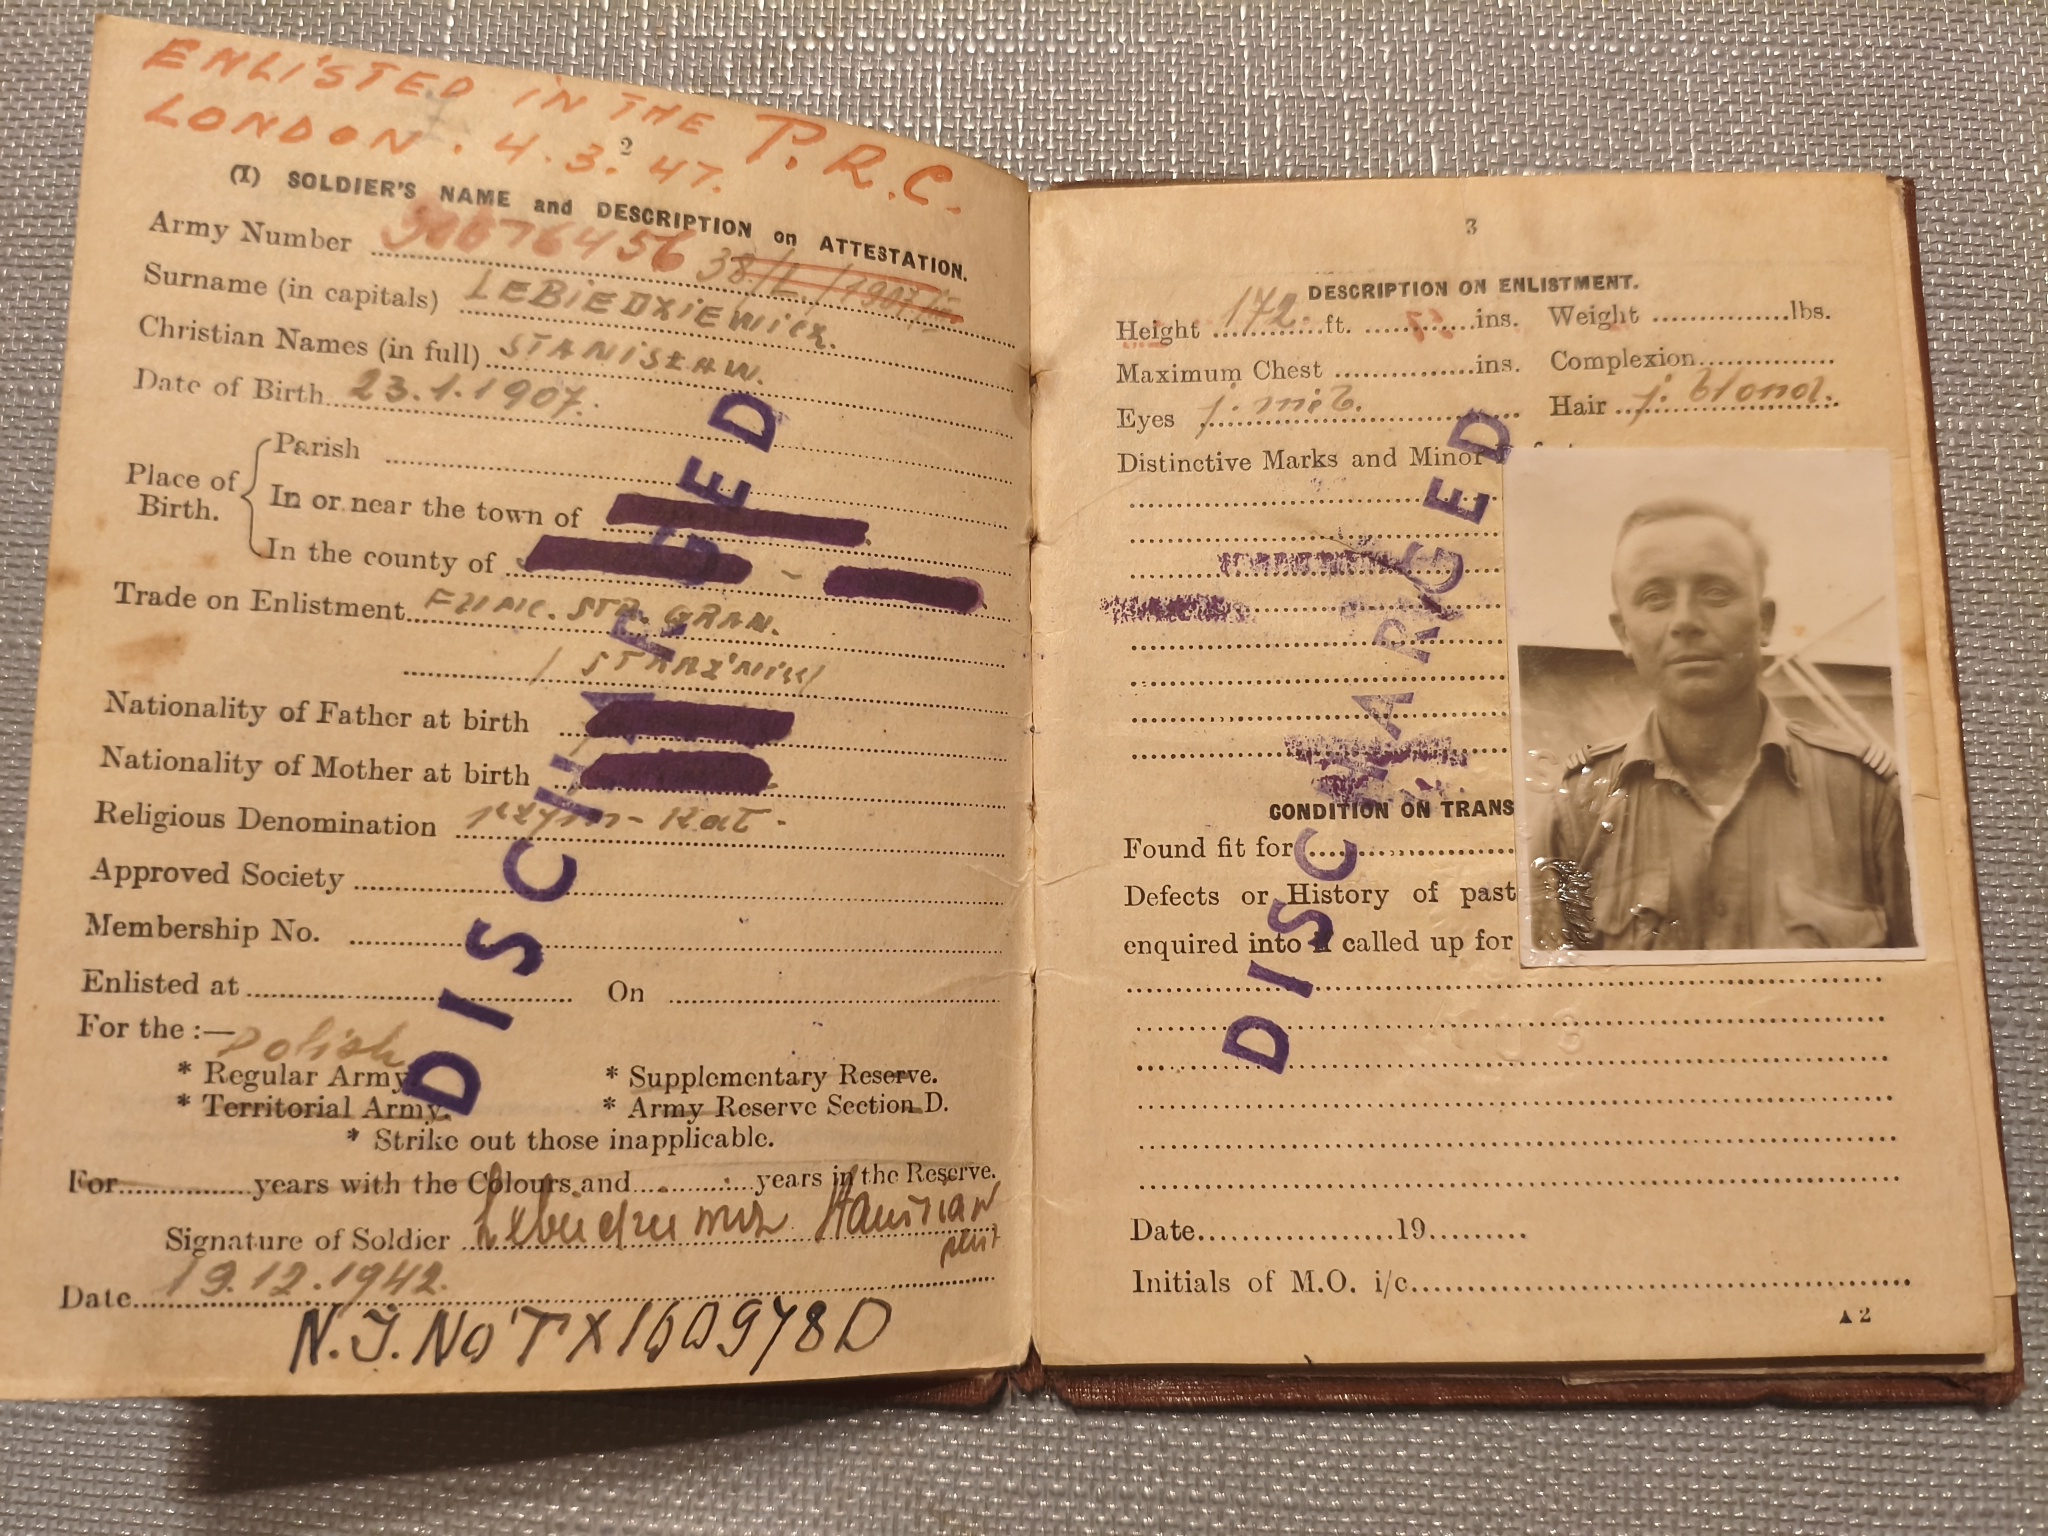 ENLISTED IN THE P.R.C.
LONDON. 4.3.47.
2
(I) SOLDIER'S NAME and DESCRIPTION on ATTESTATION.
Army Number 30076456 38/L./1907/
Surname (in capitals) LEBIEDZIEWICZ.
Christian Names (in full) STANISŁAW.
Date of Birth 23.1.1907.
Place of Birth.
Parish
In or near the town of
In the county of
Trade on Enlistment FUNC. STR. GRAN.
/STRAŻNIK/
Nationality of Father at birth
Nationality of Mother at birth
Religious Denomination rzym-kat-
Approved Society
Membership No.
Enlisted at On
For the :— Polish
* Regular Army. * Supplementary Reserve.
* Territorial Army. * Army Reserve Section D.
* Strike out those inapplicable.
For years with the Colours and years in the Reserve.
Signature of Soldier Lebiedziewicz Stanisław
Date 19.12.1942.
N.J.No TX160978D
DISCHARGED
3
DESCRIPTION ON ENLISTMENT.
Height 172. ft. ins. Weight lbs.
Maximum Chest ins. Complexion
Eyes j. nieb. Hair j. blond.
Distinctive Marks and Minor
CONDITION ON TRANS
Found fit for
Defects or History of past
enquired into if called up for
Date 19
Initials of M.O. i/c
▲ 2
DISCHARGED